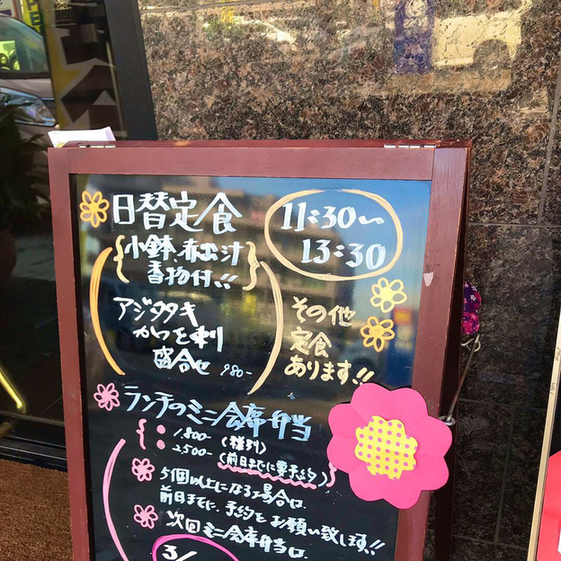 日替定食
11:30〜
13:30
小鉢.赤出汁
香物付!!
アジタタキ
かつを刺
盛合せ 980-
その他
定食
あります!!
ランチのミニ会席弁当
1.800-
2500- (前日までに要予約)
5個以上になる場合は.
前日までに.予約をお願い致します!!
次回ミニ会席弁当は.
3/